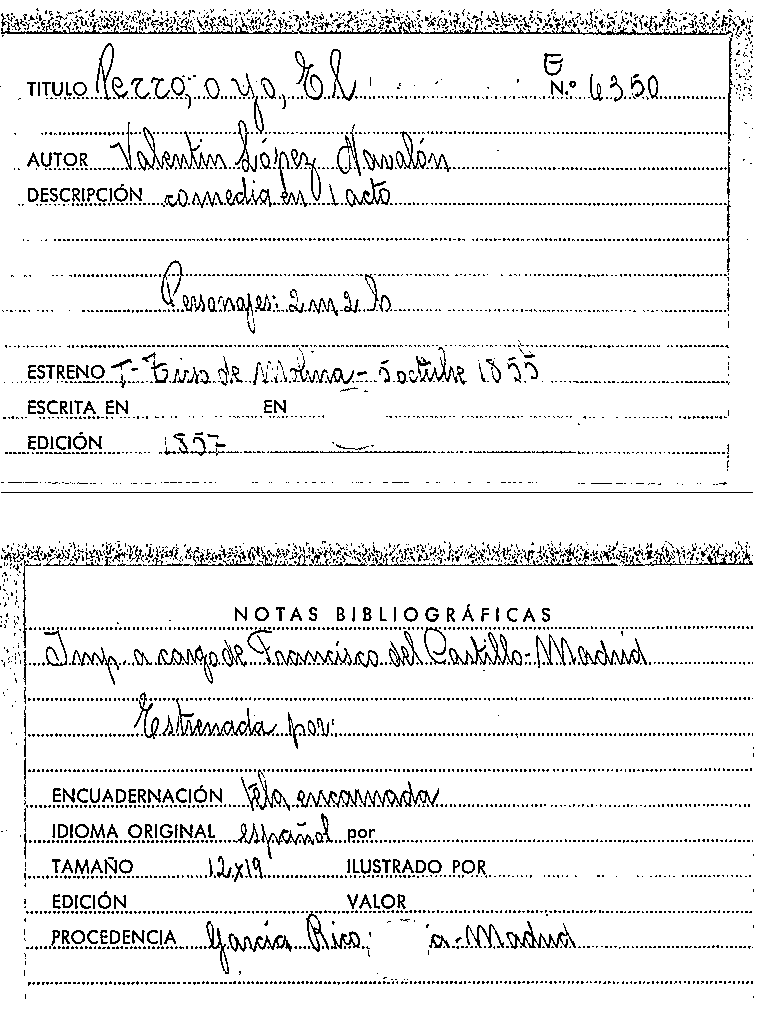 TITULO Perro, o yo, El N.º 6350
AUTOR Valentin López Navalón
DESCRIPCIÓN comedia en 1 acto
Personajes: 2 m 2 h
ESTRENO T- Tirso de Molina - 5 octubre 1855
ESCRITA EN EN
EDICIÓN 1857
NOTAS BIBLIOGRÁFICAS
Imp. a cargo de Francisco del Castillo-Madrid
Estrenada por:
ENCUADERNACIÓN tela encarnada
IDIOMA ORIGINAL español por
TAMAÑO 12x19 ILUSTRADO POR
EDICIÓN VALOR
PROCEDENCIA García Rico, a-Madrid